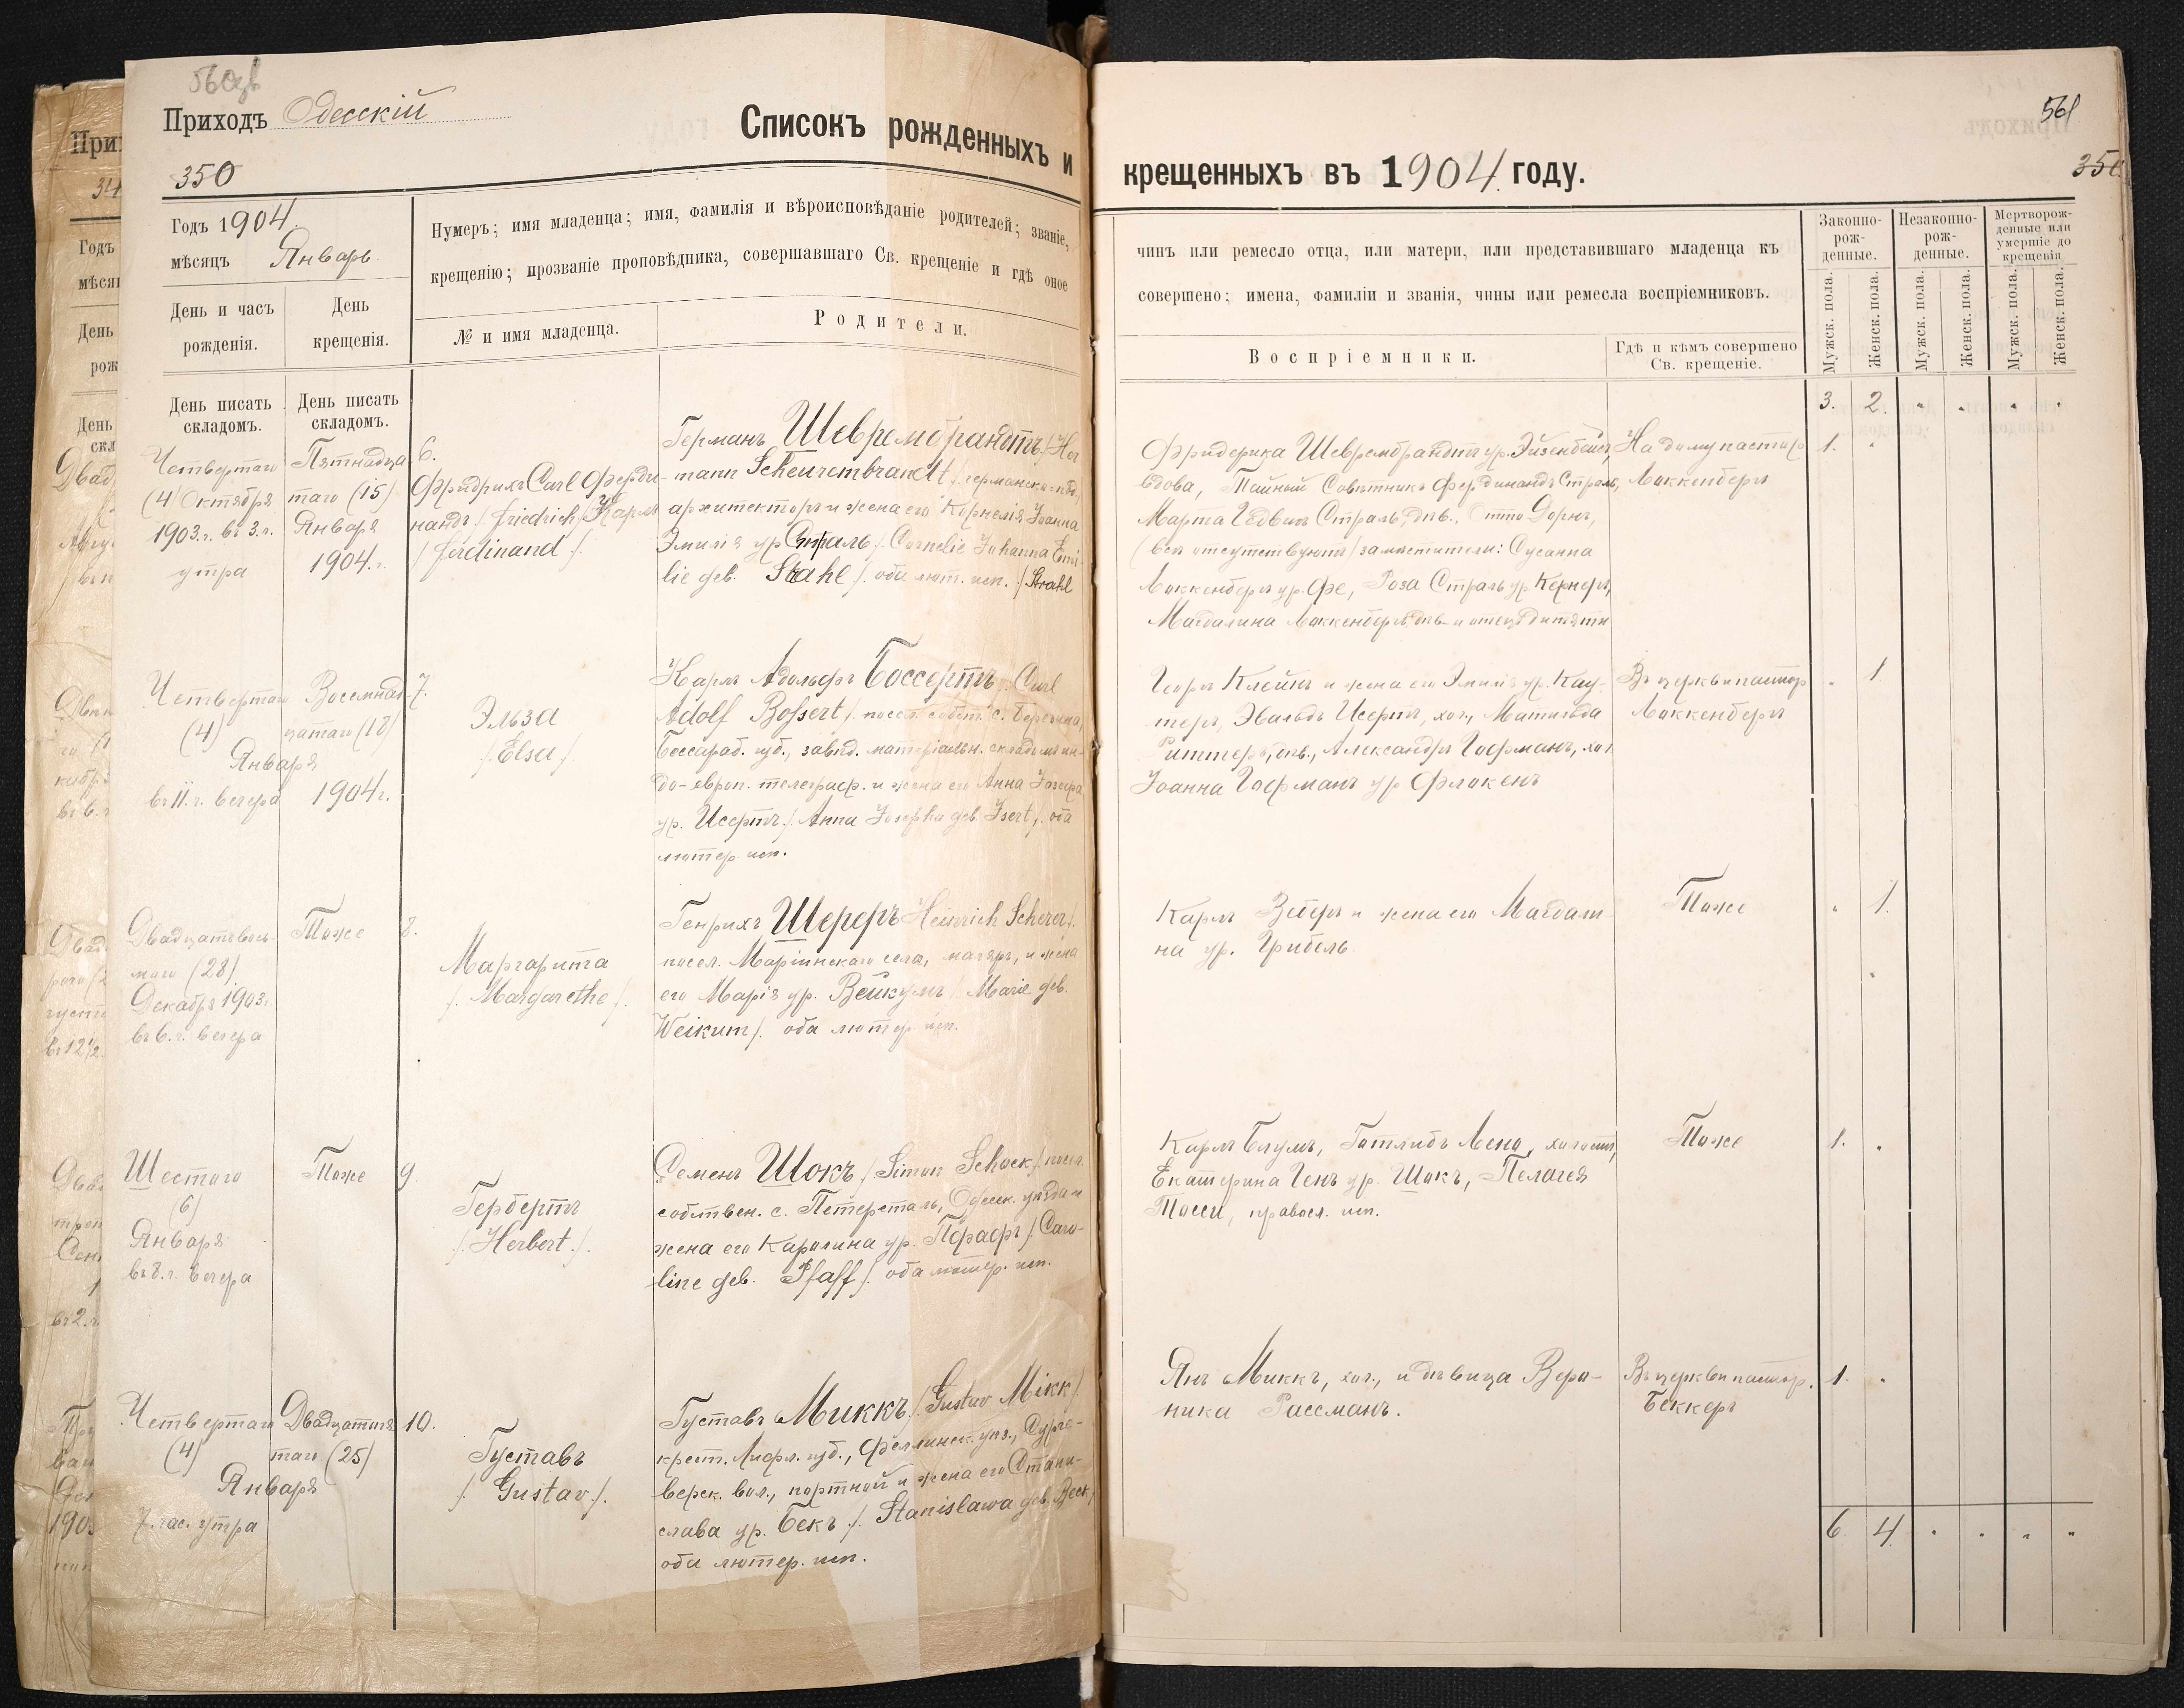 560об
Приходъ Одесскій
Списокъ рожденныхъ и
350
Годъ 1904
мѣсяцъ Январь
Нумеръ; имя младенца; имя, фамилія и вѣроисповѣданіе родителей; званіе,
крещенію; прозваніе проповѣдника, совершавшаго Св. крещеніе и гдѣ оное
День и часъ
рожденія.
День
крещенія.
№ и имя младенца.
Родители.
День писать
складомъ.
День писать
складомъ.
Четвертаго
(4) Октября
1903.г. въ 3.ч.
утра
Пятнадца
таго (15)
Января
1904.г.
6.
Фридрихъ Carl Ферди-
нандъ /. Friedrich Карлъ
/ Ferdinand /.
Германъ Шеврембрандтъ /. Her
mann Scheurembrandt /. германск. пód.,
архитекторъ и жена его Корнелія Іоанна
Эмилія ур. Страль /. Cornelie Johanna Emi-
lie geb. Stahl /. оба лют. исп. /. Strahl
Четвертаго
(4)
Января
въ 11.ч. вечера
Восемнад-
цатаго (18)
1904г.
7.
Эльза
/. Elsa /.
Карлъ Адольфъ Боссертъ /. Carl
Adolf Bossert /. посел. собств. с. Березина,
Бессараб. губ., завѣд. матеріальн. складомъ ин-
до-европ. телеграф. и жена его Анна Іозефа
ур. Исертъ. /. Anna Josepha geb. Isert /. оба
лютер. исп.
Двадцатьвось-
маго (28)
Декабря 1903.
въ 6.ч. вечера
Тоже
8.
Маргарита
/. Margarethe /.
Генрихъ Шереръ /. Heinrich Scherer /.
посел. Маріинскаго села, маляръ, и жена
его Марія ур. Вейкумъ /. Marie geb.
Weikum /. оба лютер. исп.
Шестого
(6)
Января
въ 8.ч. вечера
Тоже
9.
Гербертъ
/. Herbert /.
Семенъ Шокъ /. Simon Schock /. посел.
собствен. с. Петерсталь, Одесск. уѣзда и
жена его Каролина ур. Пфаффъ /. Caro-
line geb. Pfaff /. оба лютер. исп.
Четвертаго
(4)
Января
7.час. утра
Двадцатипя
таго (25)
10.
Густавъ
/. Gustav /.
Густавъ Миккъ /. Gustav Mikk /.
крест. Лифл. губ., Феллинск. уѣз., Сурге-
верск. вол., портной и жена его Стани-
слава ур. Бекъ /. Stanislawa geb. Beck /
оба лютер. исп.
561
351
крещенныхъ въ 1904 году.
чинъ или ремесло отца, или матери, или представившаго младенца къ
совершено; имена, фамиліи и званія, чины или ремесла воспріемниковъ.
Воспріемники.
Гдѣ и кѣмъ совершено
Св. крещеніе.
Законно-
рож-
денные.
Незаконно-
рож-
денные.
Мертворож-
денные или
умершіе до
крещенія
Мужск. пола.
Женск. пола.
Мужск. пола.
Женск. пола.
Мужск. пола.
Женск. пола.
3. 2.
Фридерика Шеврембрандтъ ур. Эйзенбейсъ,
вдова, Тайный Совѣтникъ Фердинандъ Страль,
Марта Гедвигъ Страль, дѣв., Отто Дорнъ,
(всѣ отсутствуютъ) замѣстители: Сусанна
Локкенбергъ ур. Фе, Роза Страль ур. Кернеръ,
Магдалина Локкенбергъ дѣв. и отецъ дитяти
На дому пастор
Локкенбергъ
1.
Георгъ Клейнъ и жена его Эмилія ур. Кау-
теръ, Эвальдъ Исертъ, хол., Матильда
Риттеръ, дѣв., Александръ Гофманъ, хол
Іоанна Гофманъ ур. Флакенъ
Въ церкви пастор
Локкенбергъ
1
Карлъ Веберъ и жена его Магдали-
на ур. Грибель.
Тоже
1.
Карлъ Блумъ, Готлибъ Генъ, холост.,
Екатерина Генъ ур. Шокъ, Пелагея
Тосси, правосл. исп.
Тоже
1.
Янъ Миккъ, хол., и дѣвица Веро-
ника Рассманъ.
Въ церкви пастор.
Беккеръ
1.
6. 4.